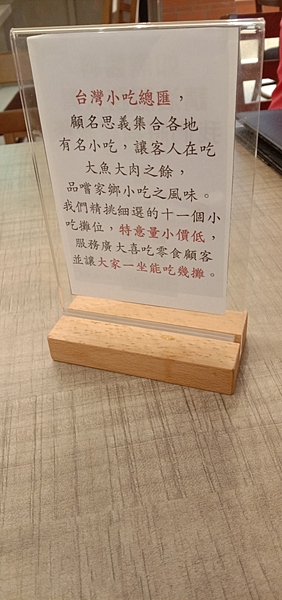 台灣小吃總匯，
顧名思義集合各地
有名小吃，讓客人在吃
大魚大肉之餘，
品嚐家鄉小吃之風味。
我們精挑細選的十一個小
吃攤位，特意量小價低，
服務廣大喜吃零食顧客
並讓大家一坐能吃幾攤。